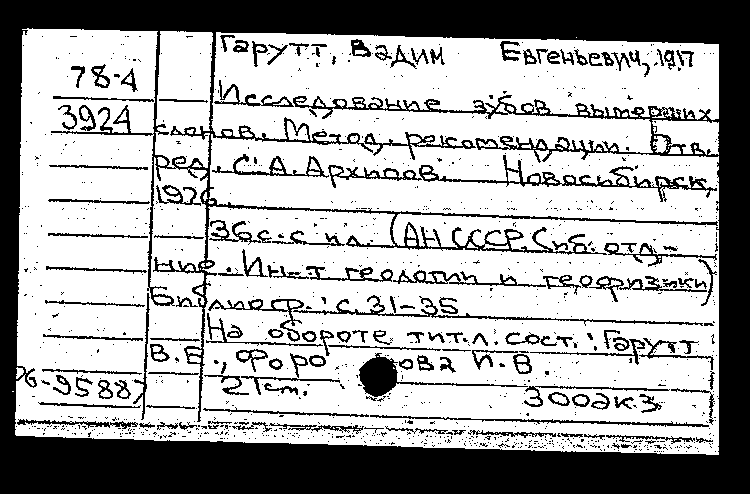 Гарутт, Вадим Евгеньевич, 1917
78-4
3924
Исследование зубов вымерших
слонов. Метод. рекомендации. Отв.
ред. С.А. Архипов. Новосибирск,
1976.
36 с. с ил. (АН СССР. Сиб. отд-
ние. Ин-т геологии и геофизики)
Библиогр.: с. 31-35.
На обороте тит. л. сост.: Гарутт
В.Е., Форо ова И.В.
21 см. 300 экз
76-95887